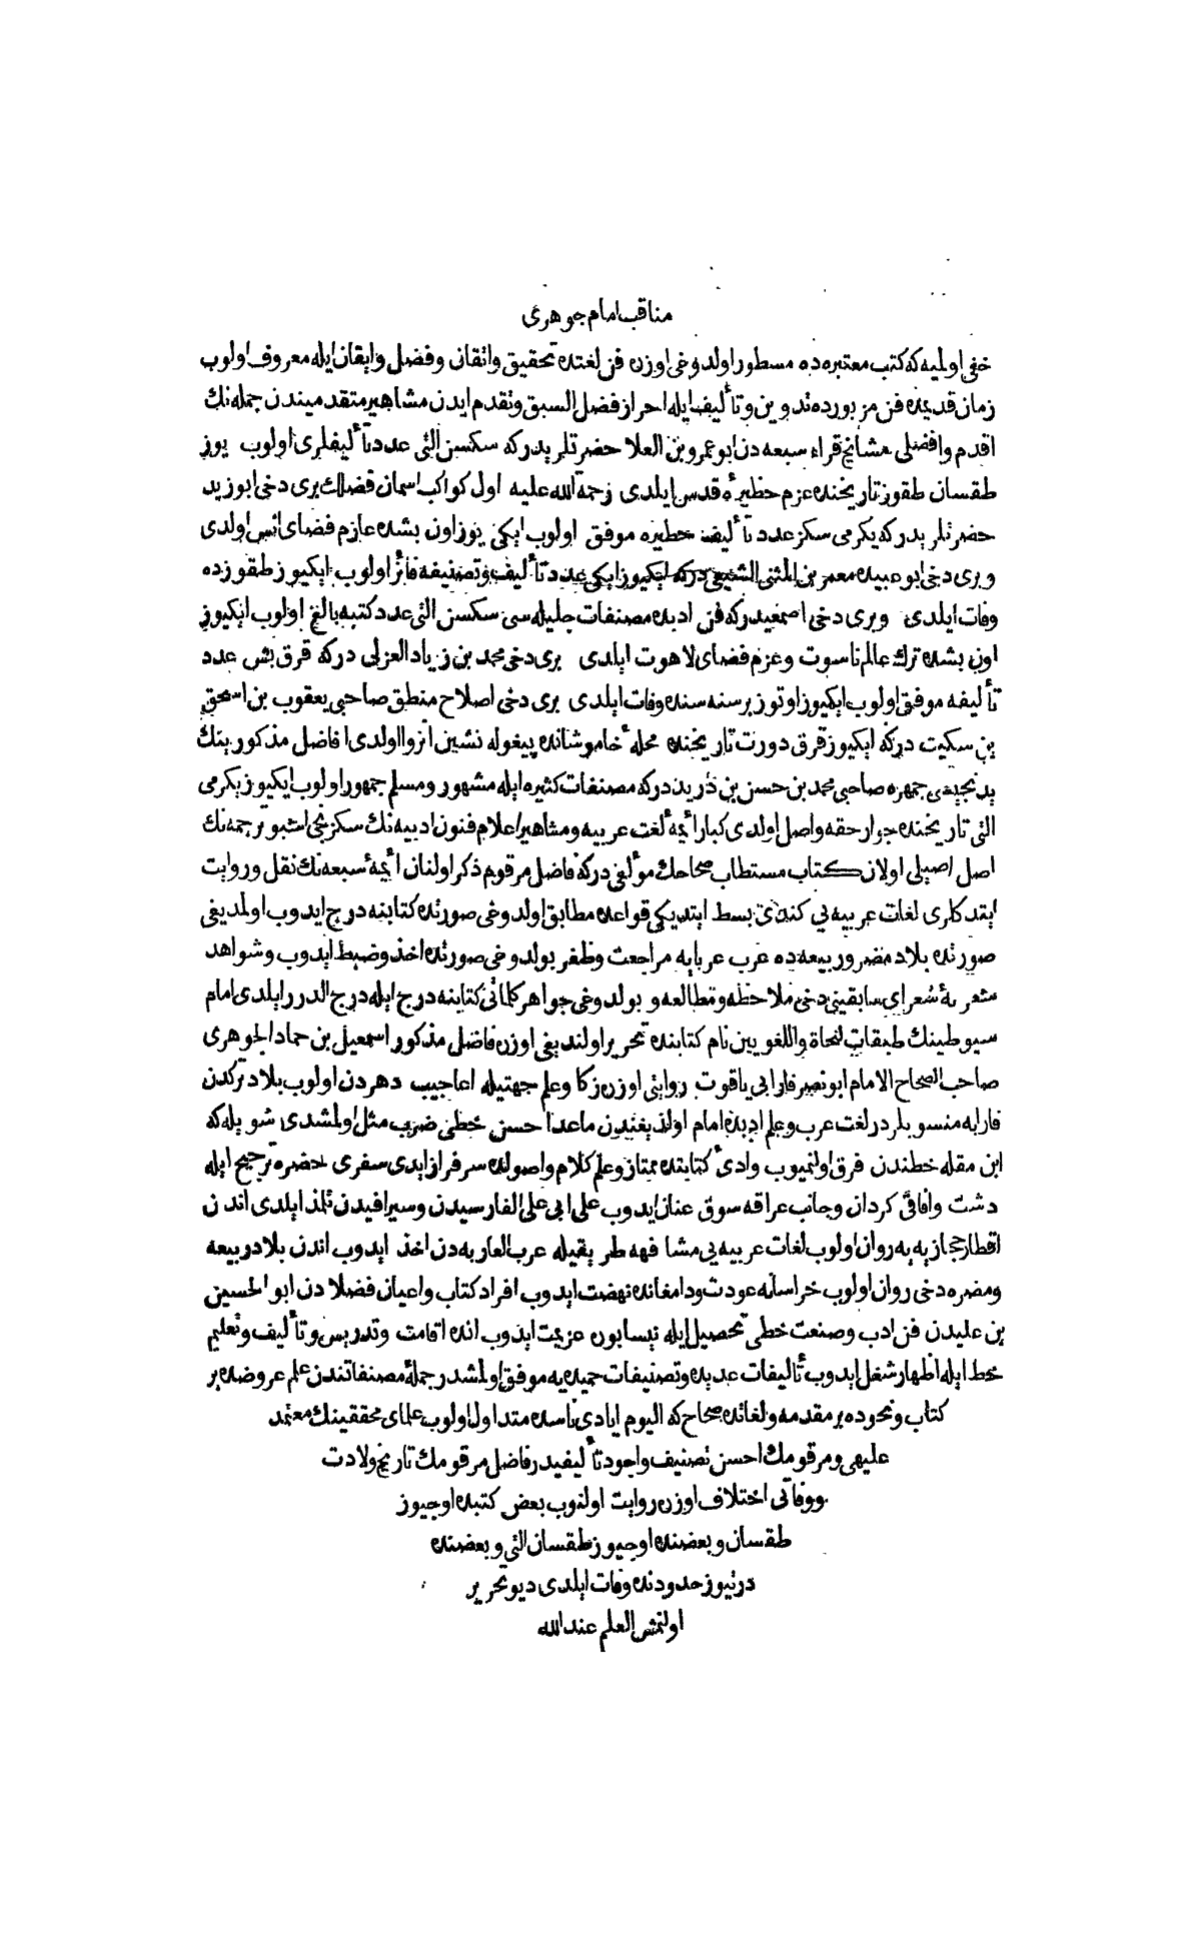 مناقب امام جوهرى
خفى اولميه كه كتب معتبره ده مسطور اولدوغى اوزره فن لغتده تحقيق واتقان وفضل وايقان ايله معروف اولوب
زمان قديمده فن مزبورده تدوين وتأليف ايله احراز فضل السبق وتقدم ايدن مشاهير متقدميندن جمله نك
اقدم وافضلى مشايخ قراء سبعه دن ابو عمرو بن العلا حضرتلريدر كه سكسن التى عدد تأليفلرى اولوب يوز
طقسان طقوز تاريخنده عزم حظيرهٔ قدس ايلدى رحمة الله عليه اول كواكب اسمان فضلك برى دخى ابو زيد
حضرتلريدر كه يكرمى سكز عدد تأليف خطيره موفق اولوب ايكى يوز اون بشده عازم فضاى انس اولدى
وبرى دخى ابو عبيده معمر بن المثنى التيمى در كه ايكيوز ايكى عدد تأليف وتصنيفه فائز اولوب ايكيوز طقوزده
وفات ايلدى وبرى دخى اصمعيدر كه فن ادبده مصنفات جليله سى سكسن التى عدد كتبه بالغ اولوب ايكيوز
اون بشده ترك عالم ناسوت وعزم فضاى لاهوت ايلدى برى دخى محمد بن زياد العزلى در كه قرق بش عدد
تأليفه موفق اولوب ايكيوز اوتوز بر سنه سنده وفات ايلدى برى دخى اصلاح منطق صاحبى يعقوب بن اسحق
بن سكيت در كه ايكيوز قرق دورت تاريخنده محلهٔ خاموشانده پيغوله نشين انزوا اولدى افاضل مذكورينك
يدنجيسى جمهره صاحبى محمد بن حسن بن دريد در كه مصنفات كثيره ايله مشهور ومسلم جمهور اولوب ايكيوز يكرمى
التى تاريخنده جوار حقه واصل اولدى كبار ائمهٔ لغت عربيه ومشاهير اعلام فنون ادبيه نك سكزنجى اشبو ترجمه نك
اصل اصيلى اولان كتاب مستطاب صحاحك مؤلفى در كه فاضل مرقوم ذكر اولنان ائمهٔ سبعه نك نقل وروايت
ايتدكلرى لغات عربيه يى كندى بسط ايتديكى قواعده مطابق اولدوغى صورتده كتابنه درج ايدوب اولمديغى
صورتده بلاد مضر وربيعه ده عرب عربايه مراجعت وظفر بولدوغى صورتده اخذ وضبط ايدوب وشواهد
شعريهٔ شعراى سابقينى دخى ملاحظه ومطالعه وبولدوغى جواهر كلماتى كتابنه درج ايله درج الدرر ايلدى امام
سيوطينك طبقات لنحاة واللغويين نام كتابنده تحرير اولنديغى اوزره فاضل مذكور اسمعيل بن حماد الجوهرى
صاحب الصحاح الامام ابو نصر فارابى ياقوت روايتى اوزره زكا وعلم جهتيله اعاجيب دهردن اولوب بلاد تركدن
فارابه منسوبلردر لغت عرب وعلم ادبده امام اولديغندن ماعدا حسن خطى ضرب مثل اولمشدى شويله كه
ابن مقله خطندن فرق اولنميوب وادئ كتابتده ممتاز وعلم كلام واصولده سرفراز ايدى سفرى حضره ترجيح ايله
دشت وافاقى كردان وجانب عراقه سوق عنان ايدوب على ابى على الفارسيدن وسيرافيدن تلمذ ايلدى اندن
اقطار حجازيه يه روان اولوب لغات عربيه يى مشافهه طريقيله عرب العاربه دن اخذ ايدوب اندن بلاد ربيعه
ومضره دخى روان اولوب خراسانه عودت ودامغانده نهضت ايدوب افراد كتاب واعيان فضلادن ابو الحسين
بن عليدن فن ادب وصنعت خطى تحصيل ايله نيسابوره عزيمت ايدوب انده اقامت وتدريس وتأليف وتعليم
خط ايله اظهار شغل ايدوب تأليفات عديده وتصنيفات حميده يه موفق اولمشدر جملهٔ مصنفاتندن علم عروضده بر
كتاب ونحوده بر مقدمه ولغاتده صحاح كه اليوم ايادى ناسده متداول اولوب علماى محققينك معتمد
عليهى ومرقومك احسن تصنيف واجود تأليفيدر فاضل مرقومك تاريخ ولادت
ووفاتى اختلاف اوزره روايت اولنوب بعض كتبده اوچيوز
طقسان وبعضنده اوچيوز طقسان التى وبعضنده
درتيوز حدودنده وفات ايلدى ديو تحرير
اولنمش العلم عند الله